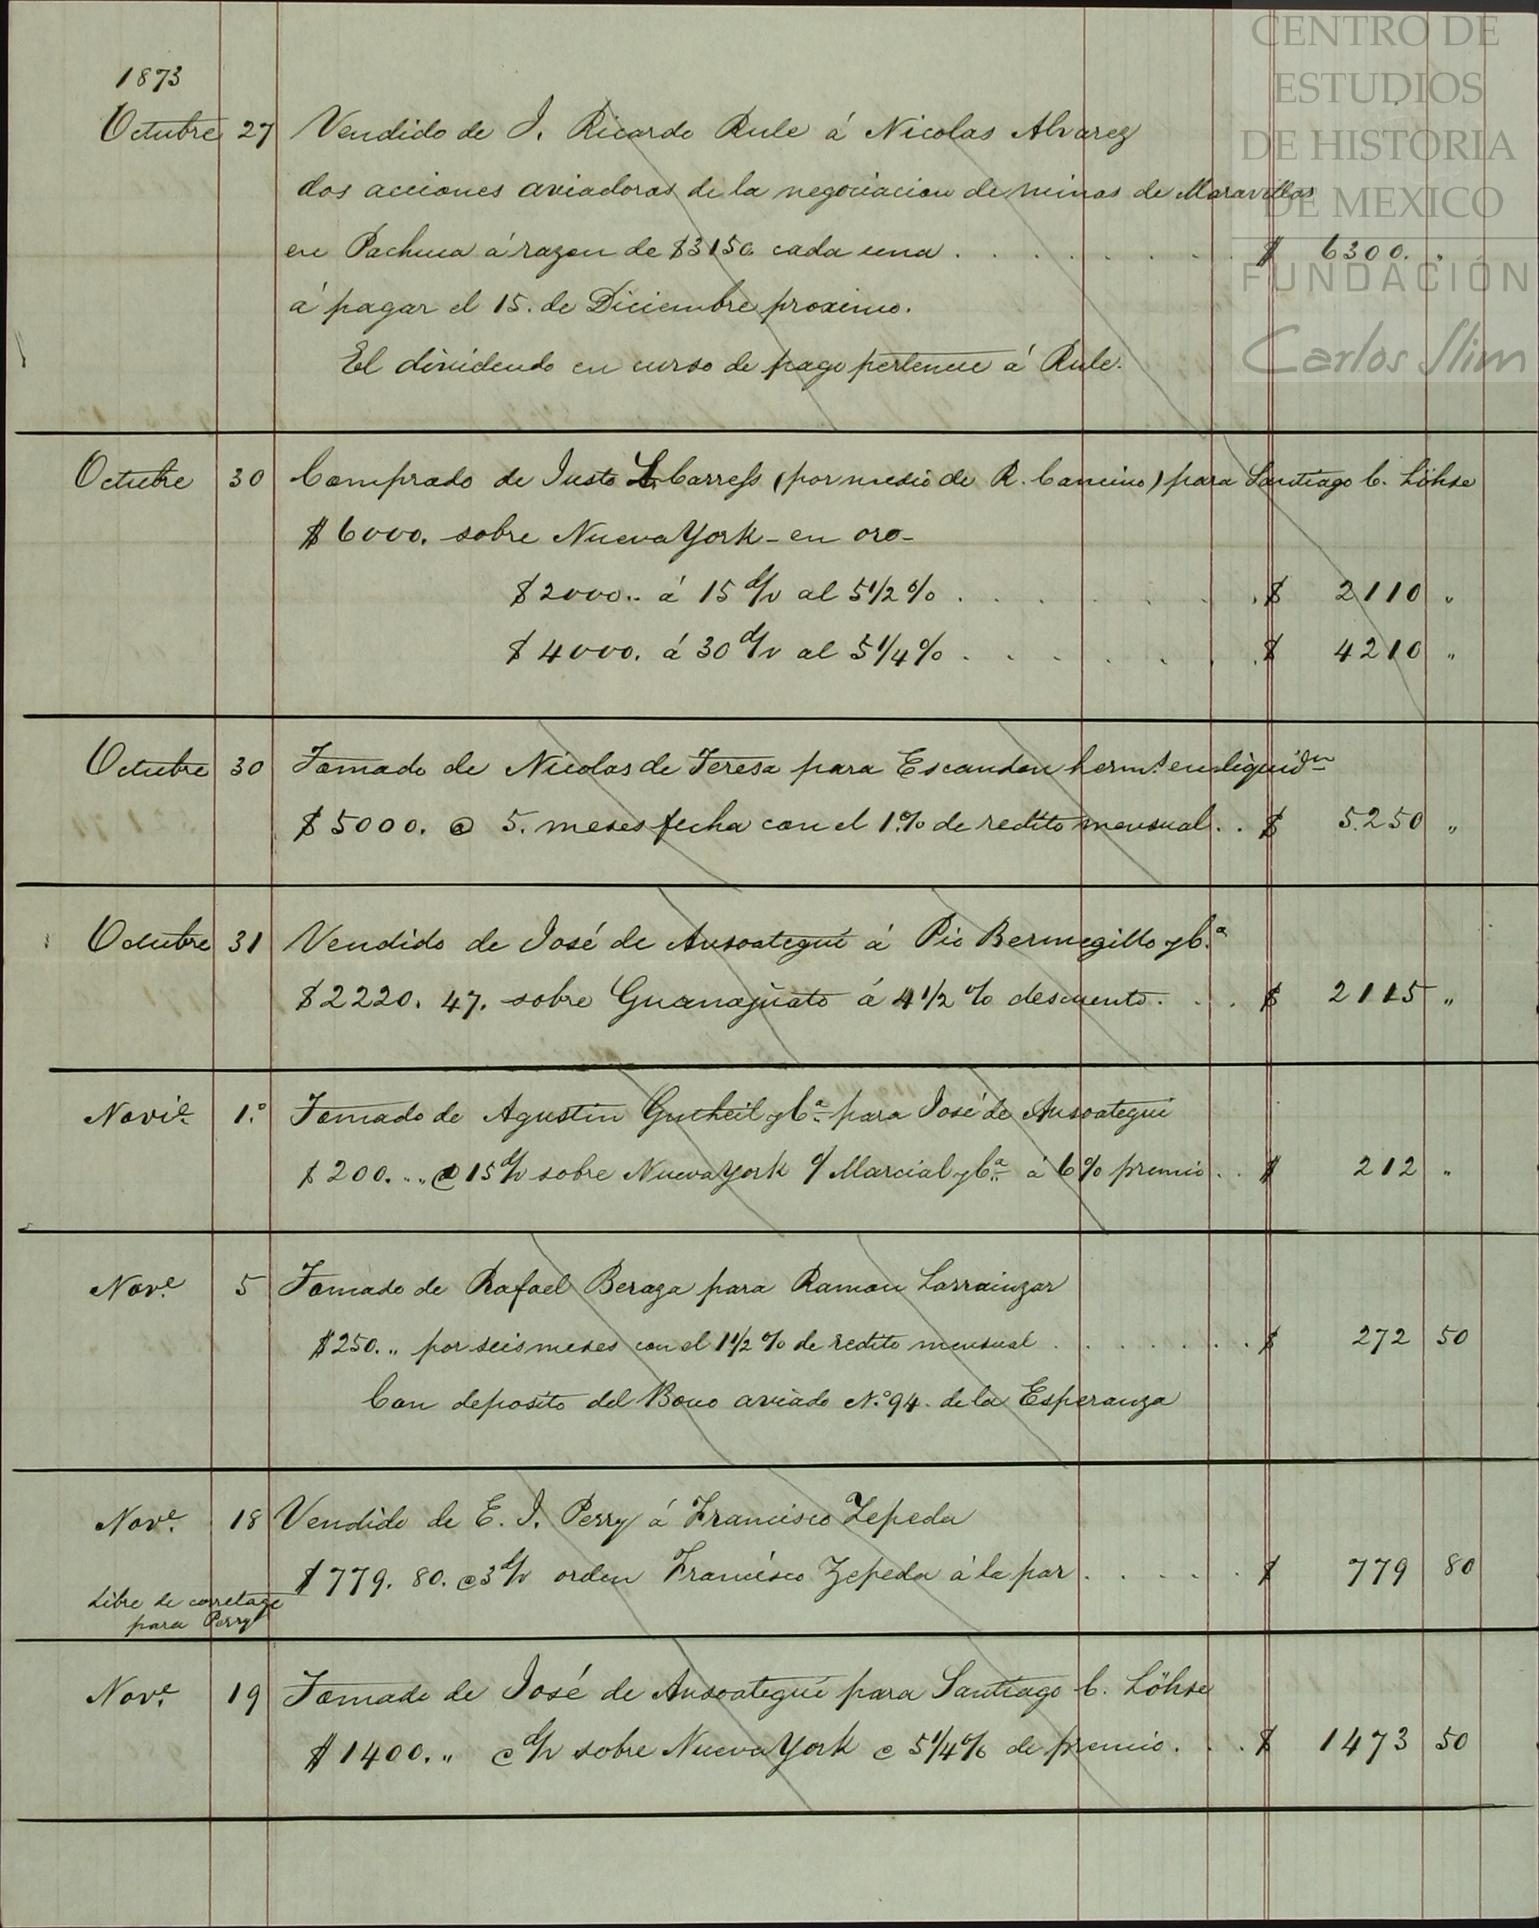 CENTRO DE
ESTUDIOS
DE HISTORIA
DE MEXICO
FUNDACIÓN
Carlos Slim
1873
Octubre 27 Vendido de J. Ricardo Rule á Nicolas Alvarez
dos acciones aviadoras de la negociacion de minas de Maravillas
en Pachuca á razon de $3150. cada una . . . . . . . $ 6300. .
á pagar el 15. de Diciembre proximo.
El dividendo en curso de pago pertenece á Rule.
Octubre 30 Comprado de Justo L. Carress (por medio de R. Cancino) para Santiago C. Löhse
$ 6000. sobre Nueva York - en oro -
$ 2000.. á 15 d/v al 5 1/2 % . . . . . . . $ 2110 "
$ 4000. á 30 d/v al 5 1/4 % . . . . . . . $ 4210 "
Octubre 30 Tomado de Nicolas de Teresa para Escandon herms. en liquidn
$ 5000. @ 5. meses fecha con el 1.% de redito mensual . . $ 5.250 "
Octubre 31 Vendido de José de Ansoategui á Pio Bermegillo y Ca
$ 2220. 47. sobre Guanajuato á 4 1/2 % descuento . . . $ 2115 "
Novie. 1.º Tomado de Agustin Gutheil y Ca. para José de Ansoategui
$ 200. .. @ 15 d/v sobre Nueva York c/ Marcial y Ca. á 6 % premio . . $ 212 "
Nove. 5 Tomado de Rafael Beraza para Ramon Larrainzar
$ 250. .. por seis meses con el 1 1/2 % de redito mensual . . . . . . . $ 272 50
Con deposito del Bono aviado N.º 94. de la Esperanza
Nove. 18 Vendido de E. J. Perry á Francisco Zepeda
$ 779. 80. @ 3 d/v orden Francisco Zepeda á la par . . . . . $ 779 80
Libre de corretage
para Perry
Nove. 19 Tomado de José de Ansoategui para Santiago C. Löhse
$ 1400. .. @ d/v sobre Nueva York @ 5 1/4 % de premio . . . $ 1473 50